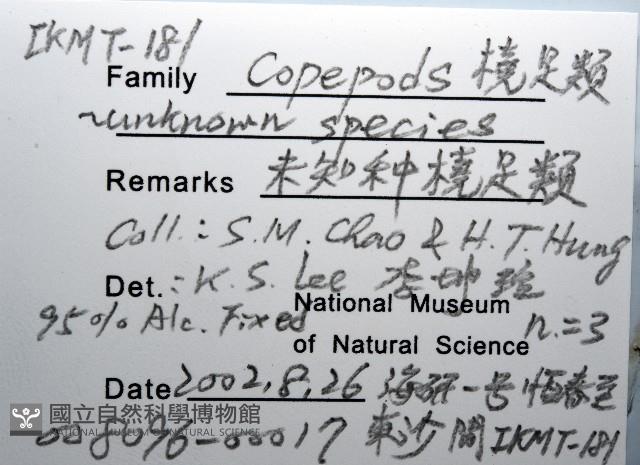 IKMT-181
Family Copepods 橈足類
~unknown species
Remarks 未知种橈足類
Coll.: S.M. Chao & H.T. Hung
Det.: K.S. Lee 李坤瑄
95% Alc. Fixed National Museum
of Natural Science n.=3
Date 2002,8,26 海研一号 恆春至
國立自然科學博物館
NATIONAL MUSEUM OF NATURAL SCIENCE
008096-00017 東沙間 IKMT-181